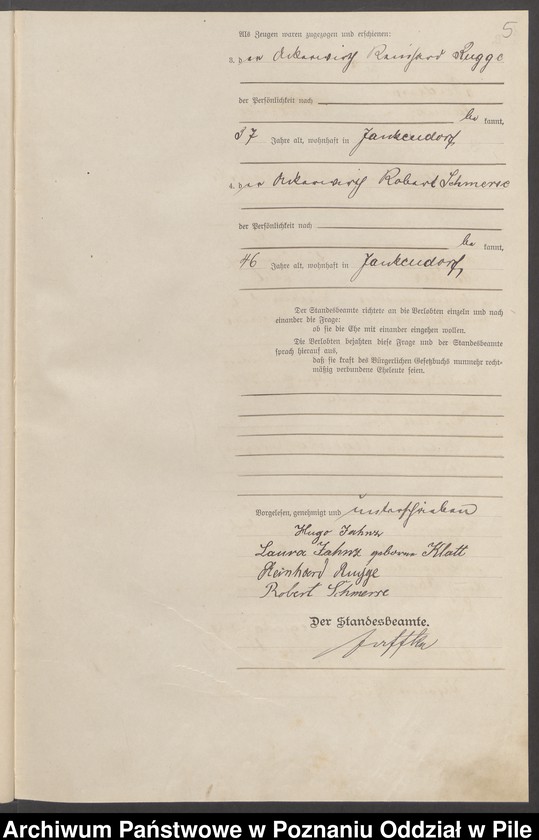 5
Als Zeugen waren zugezogen und erschienen:
3. der Ackerwirt Reinhard Rugge
der Persönlichkeit nach
be kannt,
37 Jahre alt, wohnhaft in Jankendorf
4. der Ackerwirt Robert Schmerse
der Persönlichkeit nach
be kannt,
46 Jahre alt, wohnhaft in Jankendorf,
Der Standesbeamte richtete an die Verlobten einzeln und nach
einander die Frage:
ob sie die Ehe mit einander eingehen wollen.
Die Verlobten bejahten diese Frage und der Standesbeamte
sprach hierauf aus,
daß sie kraft des Bürgerlichen Gesetzbuchs nunmehr recht-
mäßig verbundene Eheleute seien.
Vorgelesen, genehmigt und unterschrieben
Hugo Jahnz
Laura Jahnz geborne Klatt
Reinhard Rugge
Robert Schmerse
Der Standesbeamte.
Archiwum Państwowe w Poznaniu Oddział w Pile